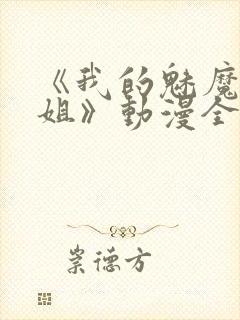 《我的魅魔
姐》動漫全
崇德方